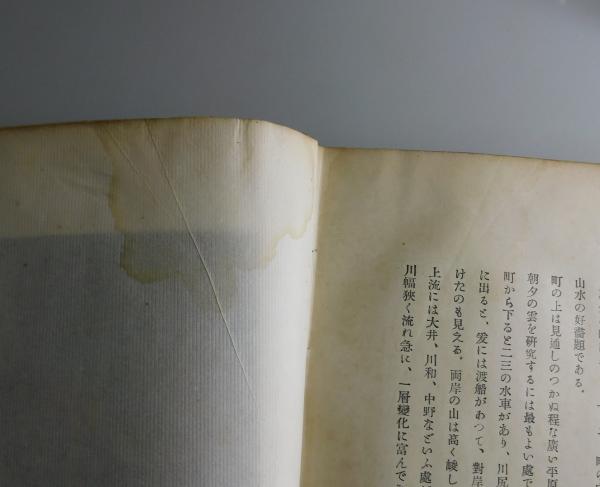 山水の好畵題である。
町の上は見通しのつかぬ程な廣い平原
朝夕の雲を研究するには最もよい處で
町から下ると二三の水車があり、川尻
に出ると、爰には渡船があつて、對岸
けたのも見える。両岸の山は高く峻し
上流には大井、川和、中野などいふ處
川幅狹く流れ急に、一層變化に富んで